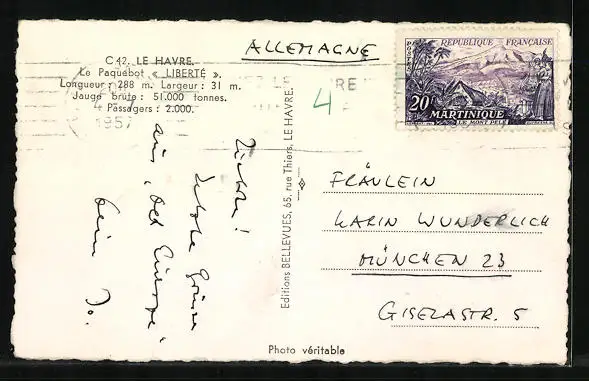 C 42. LE HAVRE.
Le Paquebot « LIBERTÉ ».
Longueur : 288 m. Largeur : 31 m.
Jauge brute : 51.000 tonnes.
Passagers : 2.000.
1957
ALLEMAGNE
RE
4
POSTES
RÉPUBLIQUE FRANÇAISE
20F
MARTINIQUE
LE MONT PELÉ
Editions BELLEVUES, 65, rue Thiers, LE HAVRE.
Grüsse
aus
dein Jo.
FRÄULEIN
KARIN WUNDERLICH
MÜNCHEN 23
GISELASTR. 5
Photo véritable